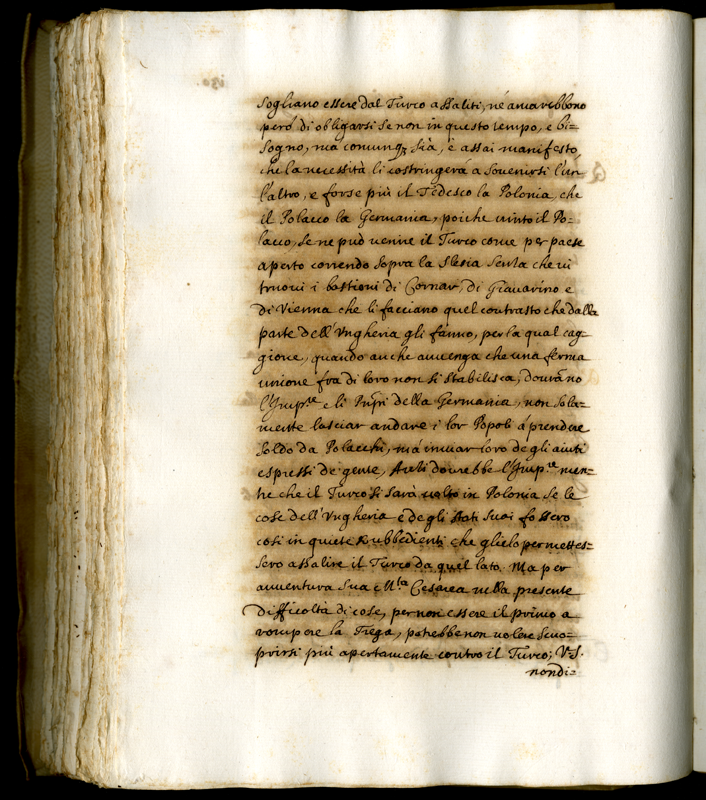 sogliano essere dal Turco assaliti, nè amarebbono
però di obligarsi se non in questo tempo, e bi=
sogno, mà comunq; sia, è assai manifesto,
che la necessità li costringerà a souenirsi l'un
l'altro, e forse più il Tedesco la Polonia, che
il Polacco la Germania, poiche uinto il Po=
lacco, se ne può uenire il Turco come per paese
aperto correndo sopra la Slesia senza che ui
truoui i bastioni di Comar, di Giauarino e
di Vienna che li facciano quel contrasto che dalla
parte dell'Vngheria gli fanno, per la qual cag=
gione, quando anche auuenga che una ferma
unione fra di loro non si stabilisca, douràno
l'Imp.re e li Prñpi della Germania, non sola=
mente lasciar andare i lor Popoli à prendere
soldo da Polacchi, mà inuiar loro degli aiuti
espressi de gente, Anzi dourebbe l'Imp.re men=
tre che il Turco si sarà uolto in Polonia se le
cose dell'Vngheria e degli stati suoi fossero
così in quiete & ubbedienti che glielo permettes=
sero assalire il Turco da quel lato. Ma per
auuentura sua M.tà Cesarea nella presente
difficoltà di cose, per non essere il primo a
rompere la Trega, potrebbe non uolere scuo=
prirsi più apertamente contro il Turco; V.S.
nondi=